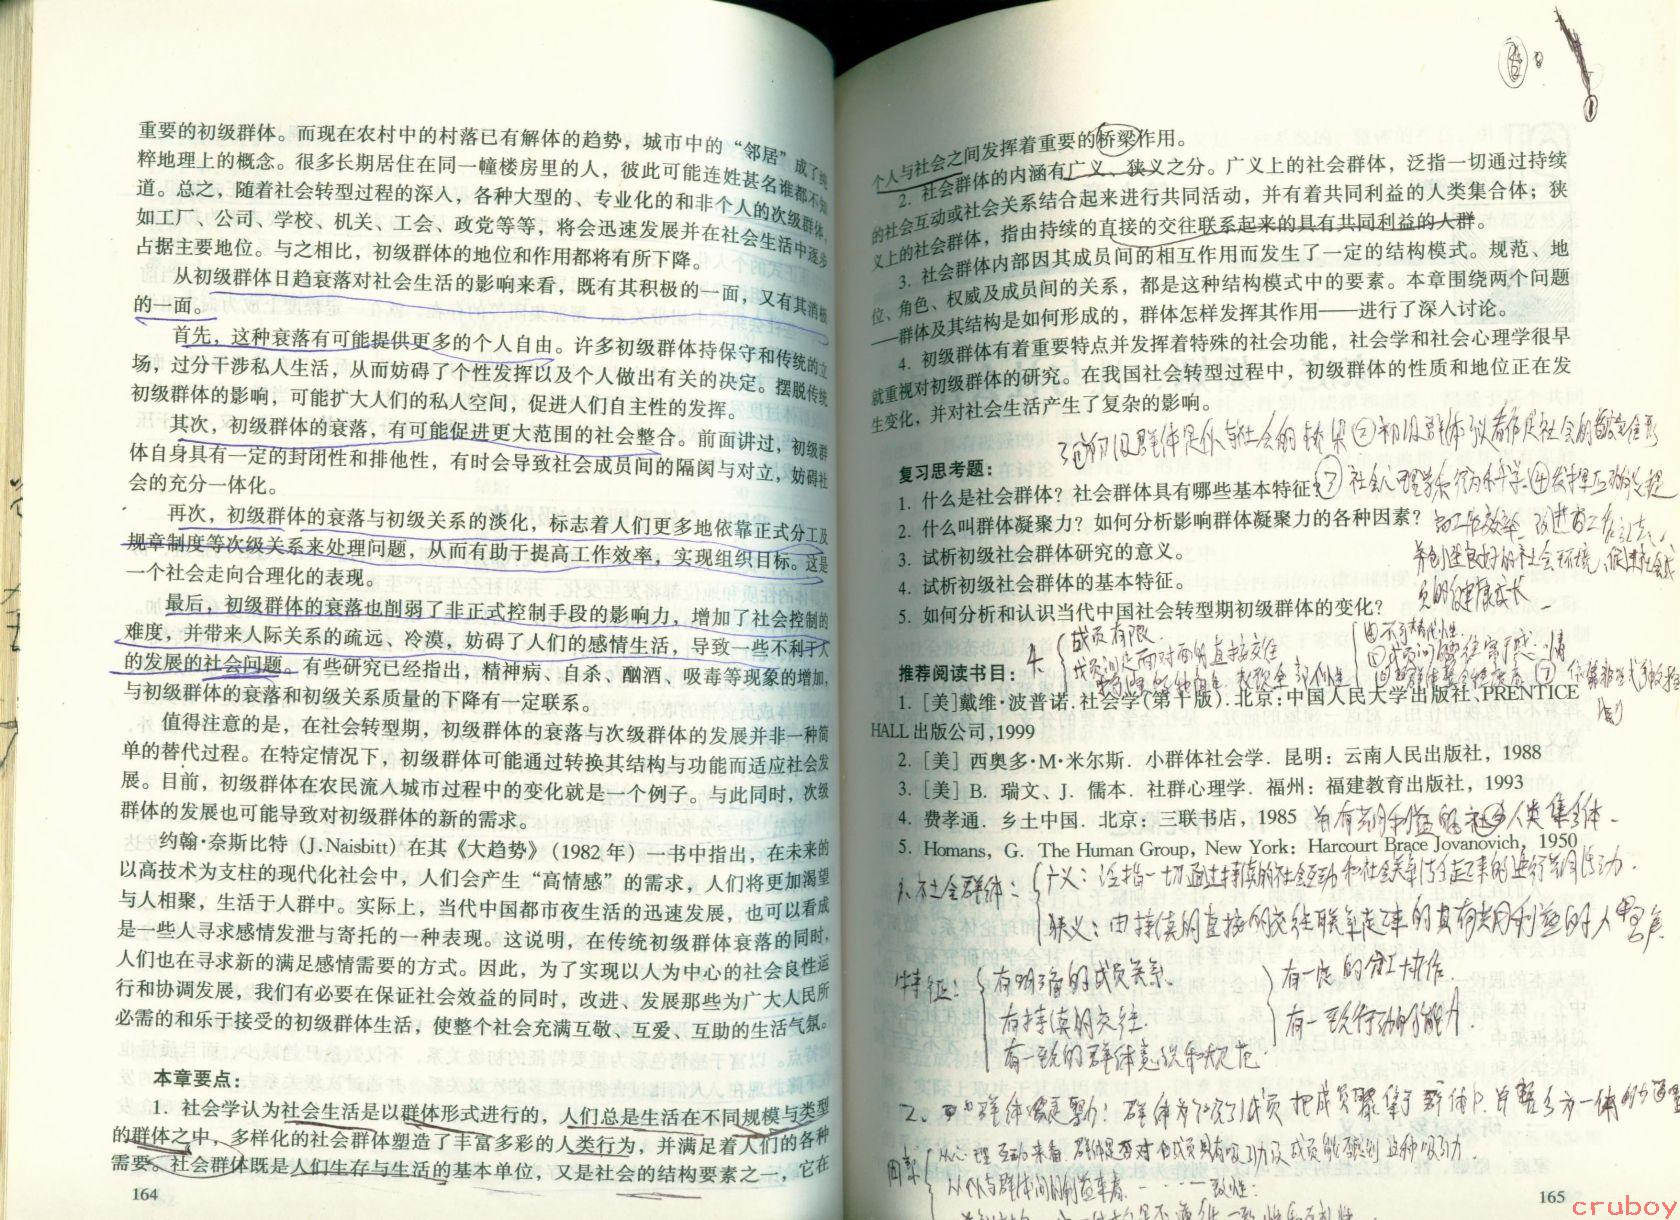 重要的初级群体。而现在农村中的村落已有解体的趋势，城市中的“邻居”成了纯
粹地理上的概念。很多长期居住在同一幢楼房里的人，彼此可能连姓甚名谁都不知
道。总之，随着社会转型过程的深入，各种大型的、专业化的和非个人的次级群体，
如工厂、公司、学校、机关、工会、政党等等，将会迅速发展并在社会生活中逐步
占据主要地位。与之相比，初级群体的地位和作用都将有所下降。
从初级群体日趋衰落对社会生活的影响来看，既有其积极的一面，又有其消极
的一面。
首先，这种衰落有可能提供更多的个人自由。许多初级群体持保守和传统的立
场，过分干涉私人生活，从而妨碍了个性发挥以及个人做出有关的决定。摆脱传统
初级群体的影响，可能扩大人们的私人空间，促进人们自主性的发挥。
其次，初级群体的衰落，有可能促进更大范围的社会整合。前面讲过，初级群
体自身具有一定的封闭性和排他性，有时会导致社会成员间的隔阂与对立，妨碍社
会的充分一体化。
再次，初级群体的衰落与初级关系的淡化，标志着人们更多地依靠正式分工及
规章制度等次级关系来处理问题，从而有助于提高工作效率，实现组织目标。这是
一个社会走向合理化的表现。
最后，初级群体的衰落也削弱了非正式控制手段的影响力，增加了社会控制的
难度，并带来人际关系的疏远、冷漠，妨碍了人们的感情生活，导致一些不利于人
的发展的社会问题。有些研究已经指出，精神病、自杀、酗酒、吸毒等现象的增加，
与初级群体的衰落和初级关系质量的下降有一定联系。
值得注意的是，在社会转型期，初级群体的衰落与次级群体的发展并非一种简
单的替代过程。在特定情况下，初级群体可能通过转换其结构与功能而适应社会发
展。目前，初级群体在农民流入城市过程中的变化就是一个例子。与此同时，次级
群体的发展也可能导致对初级群体的新的需求。
约翰·奈斯比特（J. Naisbitt）在其《大趋势》（1982年）一书中指出，在未来的
以高技术为支柱的现代化社会中，人们会产生“高情感”的需求，人们将更加渴望
与人相聚，生活于人群中。实际上，当代中国都市夜生活的迅速发展，也可以看成
是一些人寻求感情发泄与寄托的一种表现。这说明，在传统初级群体衰落的同时，
人们也在寻求新的满足感情需要的方式。因此，为了实现以人为中心的社会良性运
行和协调发展，我们有必要在保证社会效益的同时，改进、发展那些为广大人民所
必需的和乐于接受的初级群体生活，使整个社会充满互敬、互爱、互助的生活气氛。
本章要点：
1. 社会学认为社会生活是以群体形式进行的，人们总是生活在不同规模与类型
的群体之中，多样化的社会群体塑造了丰富多彩的人类行为，并满足着人们的各种
需要。社会群体既是人们生存与生活的基本单位，又是社会的结构要素之一，它在
164
个人与社会之间发挥着重要的桥梁作用。
2. 社会群体的内涵有广义、狭义之分。广义上的社会群体，泛指一切通过持续
的社会互动或社会关系结合起来进行共同活动，并有着共同利益的人类集合体；狭
义上的社会群体，指由持续的直接的交往联系起来的具有共同利益的人群。
3. 社会群体内部因其成员间的相互作用而发生了一定的结构模式。规范、地
位、角色、权威及成员间的关系，都是这种结构模式中的要素。本章围绕两个问题
——群体及其结构是如何形成的，群体怎样发挥其作用——进行了深入讨论。
4. 初级群体有着重要特点并发挥着特殊的社会功能，社会学和社会心理学很早
就重视对初级群体的研究。在我国社会转型过程中，初级群体的性质和地位正在发
生变化，并对社会生活产生了复杂的影响。
初级群体是个人与社会的桥梁 ②初级群体
复习思考题：
1. 什么是社会群体？社会群体具有哪些基本特征？
③社会心理学
2. 什么叫群体凝聚力？如何分析影响群体凝聚力的各种因素？
工作效率 改进
3. 试析初级社会群体研究的意义。
良好的社会环境，促进社会成
4. 试析初级社会群体的基本特征。
员的健康成长
5. 如何分析和认识当代中国社会转型期初级群体的变化？
4. 成员有限
面对面的直接交往
不可替代性
推荐阅读书目：
1. [美]戴维·波普诺. 社会学(第十版). 北京: 中国人民大学出版社, PRENTICE
HALL 出版公司, 1999
2. [美] 西奥多·M·米尔斯. 小群体社会学. 昆明：云南人民出版社，1988
3. [美] B. 瑞文、J. 儒本. 社群心理学. 福州：福建教育出版社，1993
4. 费孝通. 乡土中国. 北京：三联书店，1985
有共同利益的人类集合体。
5. Homans, G. The Human Group, New York: Harcourt Brace Jovanovich, 1950
1. 社会群体：广义：泛指一切通过持续的社会互动和社会关系结合起来的进行共同活动.
狭义：由持续的直接的交往联系起来的具有共同利益的人
特征：有明确的成员关系.
有持续的交往.
有一致的群体意识和规范.
有一定的分工协作.
有一致行动的能力.
2. 群体凝聚力：
因素：
165
cruboy